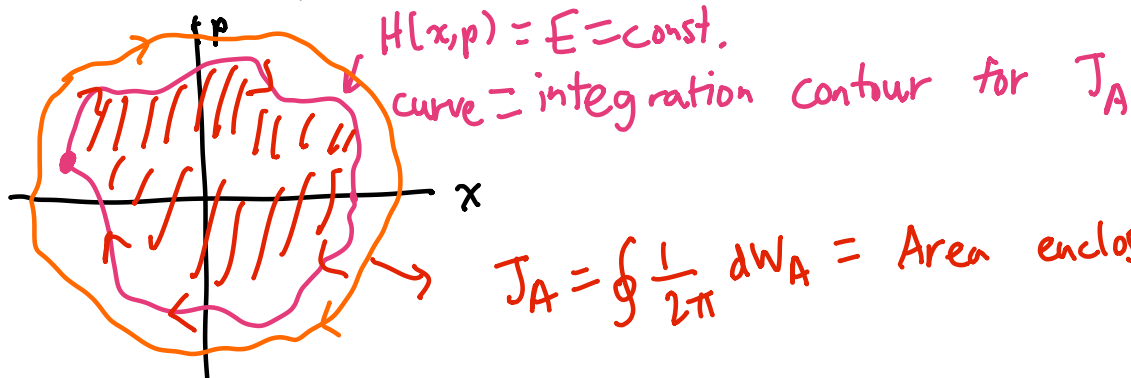 p
H(x,p) = E = const.
curve = integration contour for J_A
x
J_A = ∮ 1/2π dW_A = Area